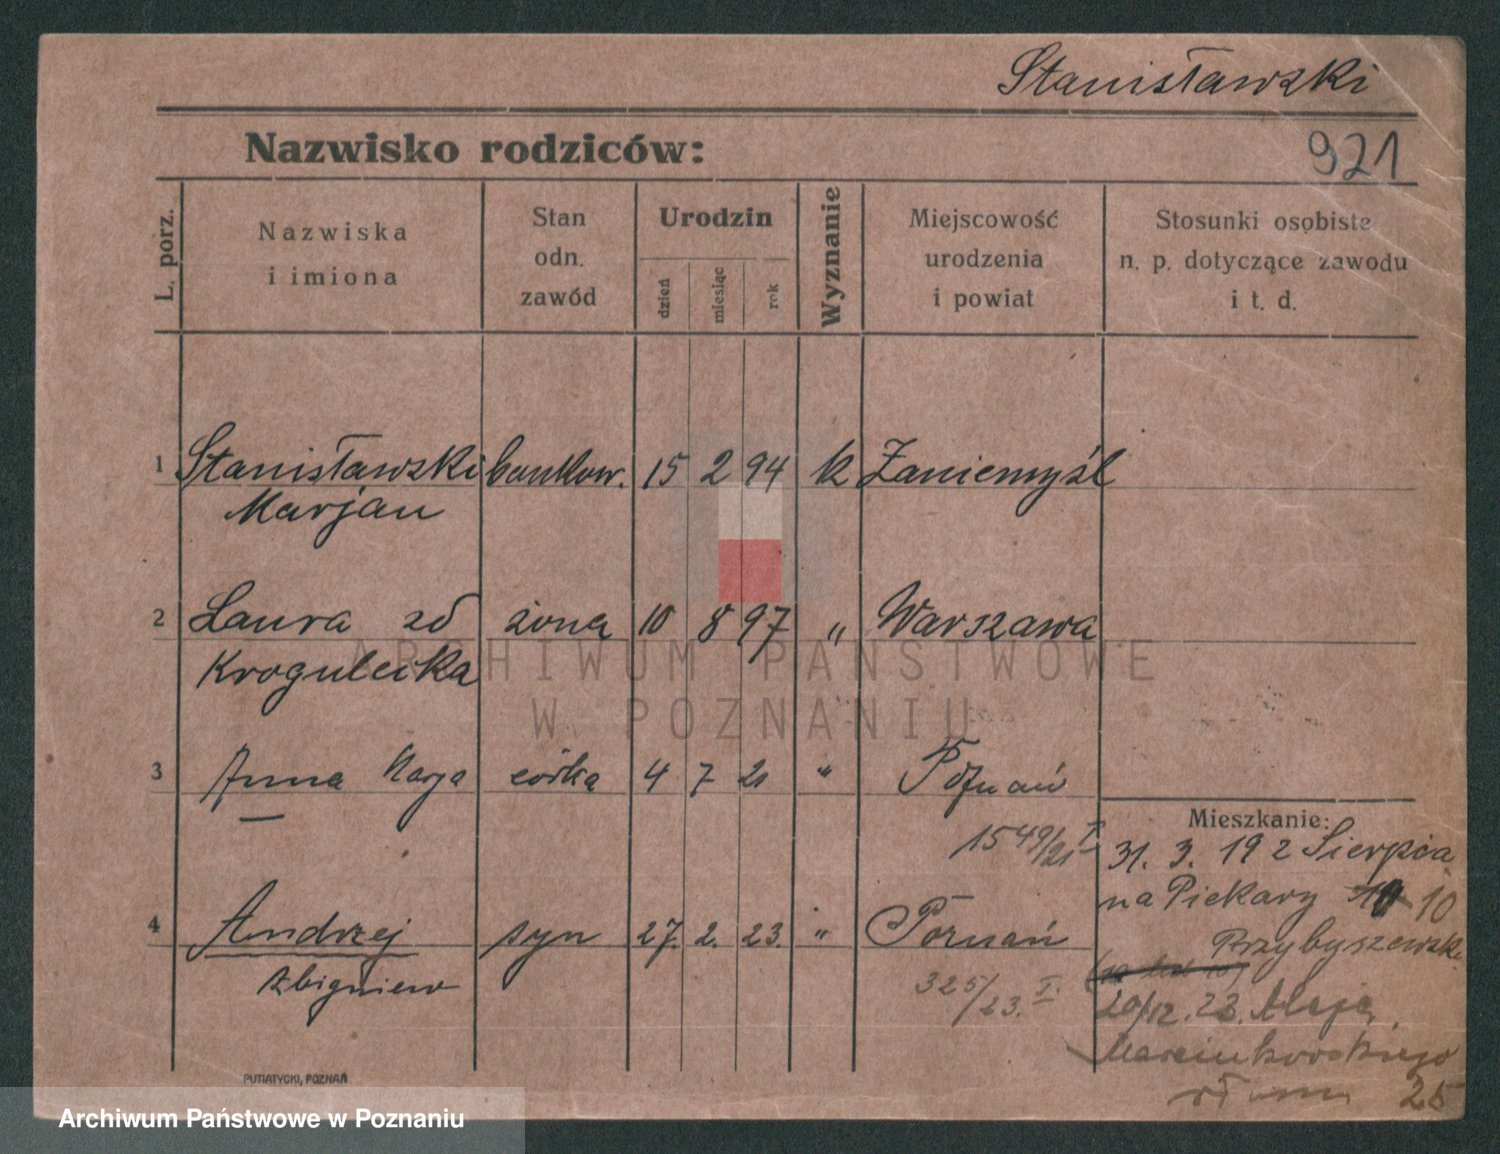 Stanisławski
921
Nazwisko rodziców:
L. porz.
Nazwiska
i imiona
Stan
odn.
zawód
Urodzin
dzień
miesiąc
rok
Wyznanie
Miejscowość
urodzenia
i powiat
Stosunki osobiste
n. p. dotyczące zawodu
i t. d.
1 Stanisławski bankow. 15 2 94 k Zaniemyśl
Marjan
2 Laura zd żona 10 8 97 „ Warszawa
Krogulecka
ARCHIWUM PAŃSTWOWE
W POZNANIU
3 Anna Marja córka 4 7 21 „ Poznań
1549/21 I
Mieszkanie:
31. 3. 19 z Sierpca
na Piekary 10
4 Andrzej syn 27. 2. 23. „ Poznań
Zbigniew
325/23. I.
Przybyszewsk.
20/12. 23. Aleje
Marcinkowskiego
25
PUTIATYCKI, POZNAŃ
Archiwum Państwowe w Poznaniu